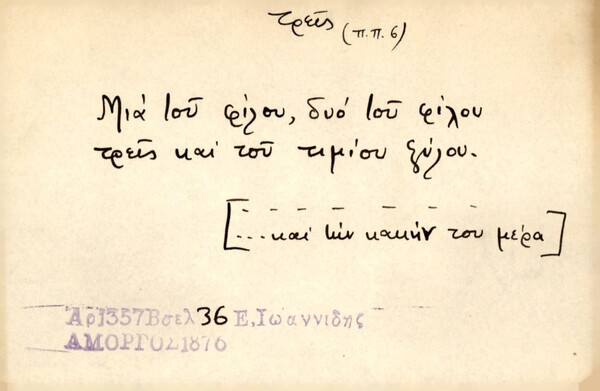 τρεῖς (π.π. 6)
Μιά τοῦ φίλου, δυό τοῦ φίλου
τρεῖς καί τοῦ τιμίου ξύλου.
[... καί τήν κακήν του μέρα]
Αρ1357Βσελ 36 Ε.Ιωαννιδης
ΑΜΟΡΓΟΣ1876